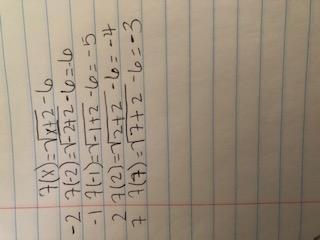 f(x)=√x+2-6
-2 f(-2)=√-2+2-6=-6
-1 f(-1)=√-1+2-6=-5
2 f(2)=√2+2-6=-4
7 f(7)=√7+2-6=-3